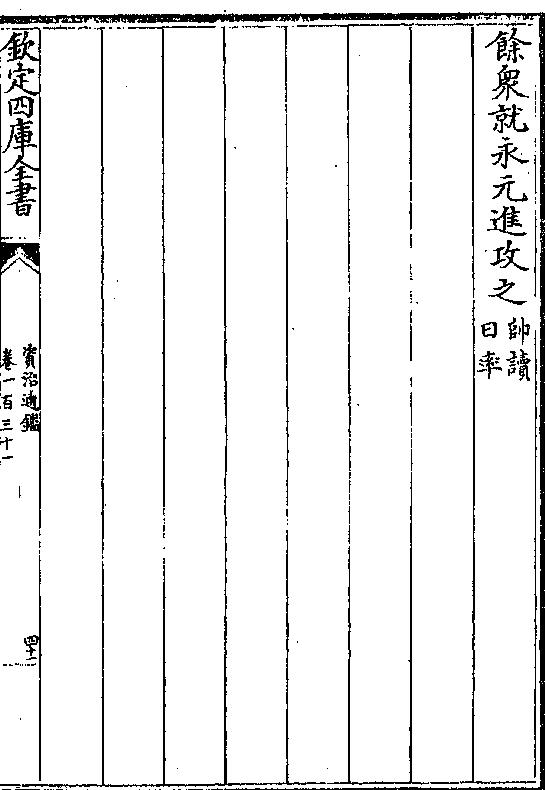 餘衆就永元進攻之帥讀曰率
欽定四庫全書
資治通鑑
卷一百三十一
四十二